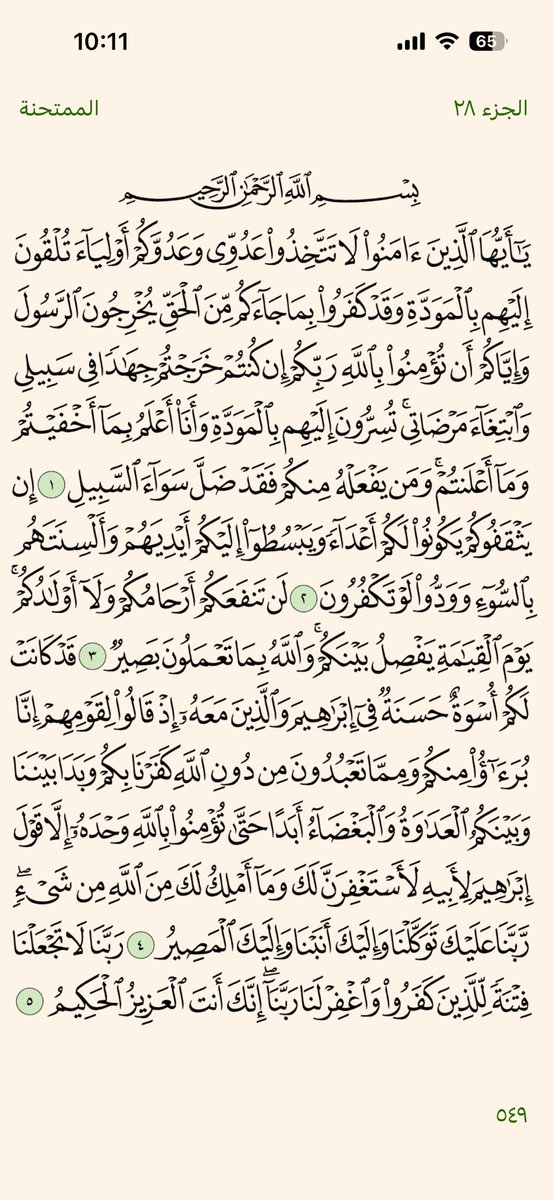 10:11
65
الجزء ٢٨
الممتحنة
بِسۡمِ ٱللَّهِ ٱلرَّحۡمَٰنِ ٱلرَّحِيمِ
يَٰٓأَيُّهَا ٱلَّذِينَ ءَامَنُواْ لَا تَتَّخِذُواْ عَدُوِّي وَعَدُوَّكُمۡ أَوۡلِيَآءَ تُلۡقُونَ
إِلَيۡهِم بِٱلۡمَوَدَّةِ وَقَدۡ كَفَرُواْ بِمَا جَآءَكُم مِّنَ ٱلۡحَقِّ يُخۡرِجُونَ ٱلرَّسُولَ
وَإِيَّاكُمۡ أَن تُؤۡمِنُواْ بِٱللَّهِ رَبِّكُمۡ إِن كُنتُمۡ خَرَجۡتُمۡ جِهَٰدٗا فِي سَبِيلِي
وَٱبۡتِغَآءَ مَرۡضَاتِيۚ تُسِرُّونَ إِلَيۡهِم بِٱلۡمَوَدَّةِ وَأَنَا۠ أَعۡلَمُ بِمَآ أَخۡفَيۡتُمۡ
وَمَآ أَعۡلَنتُمۡۚ وَمَن يَفۡعَلۡهُ مِنكُمۡ فَقَدۡ ضَلَّ سَوَآءَ ٱلسَّبِيلِ ١ إِن
يَثۡقَفُوكُمۡ يَكُونُواْ لَكُمۡ أَعۡدَآءٗ وَيَبۡسُطُوٓاْ إِلَيۡكُمۡ أَيۡدِيَهُمۡ وَأَلۡسِنَتَهُم
بِٱلسُّوٓءِ وَوَدُّواْ لَوۡ تَكۡفُرُونَ ٢ لَن تَنفَعَكُمۡ أَرۡحَامُكُمۡ وَلَآ أَوۡلَٰدُكُمۡۚ
يَوۡمَ ٱلۡقِيَٰمَةِ يَفۡصِلُ بَيۡنَكُمۡۚ وَٱللَّهُ بِمَا تَعۡمَلُونَ بَصِيرٞ ٣ قَدۡ كَانَتۡ
لَكُمۡ أُسۡوَةٌ حَسَنَةٞ فِيٓ إِبۡرَٰهِيمَ وَٱلَّذِينَ مَعَهُۥٓ إِذۡ قَالُواْ لِقَوۡمِهِمۡ إِنَّا
بُرَءَٰٓؤُاْ مِنكُمۡ وَمِمَّا تَعۡبُدُونَ مِن دُونِ ٱللَّهِ كَفَرۡنَا بِكُمۡ وَبَدَا بَيۡنَنَا
وَبَيۡنَكُمُ ٱلۡعَدَٰوَةُ وَٱلۡبَغۡضَآءُ أَبَدًا حَتَّىٰ تُؤۡمِنُواْ بِٱللَّهِ وَحۡدَهُۥٓ إِلَّا قَوۡلَ
إِبۡرَٰهِيمَ لِأَبِيهِ لَأَسۡتَغۡفِرَنَّ لَكَ وَمَآ أَمۡلِكُ لَكَ مِنَ ٱللَّهِ مِن شَيۡءٖۖ
رَّبَّنَا عَلَيۡكَ تَوَكَّلۡنَا وَإِلَيۡكَ أَنَبۡنَا وَإِلَيۡكَ ٱلۡمَصِيرُ ٤ رَبَّنَا لَا تَجۡعَلۡنَا
فِتۡنَةٗ لِّلَّذِينَ كَفَرُواْ وَٱغۡفِرۡ لَنَا رَبَّنَآۖ إِنَّكَ أَنتَ ٱلۡعَزِيزُ ٱلۡحَكِيمُ ٥
٥٤٩